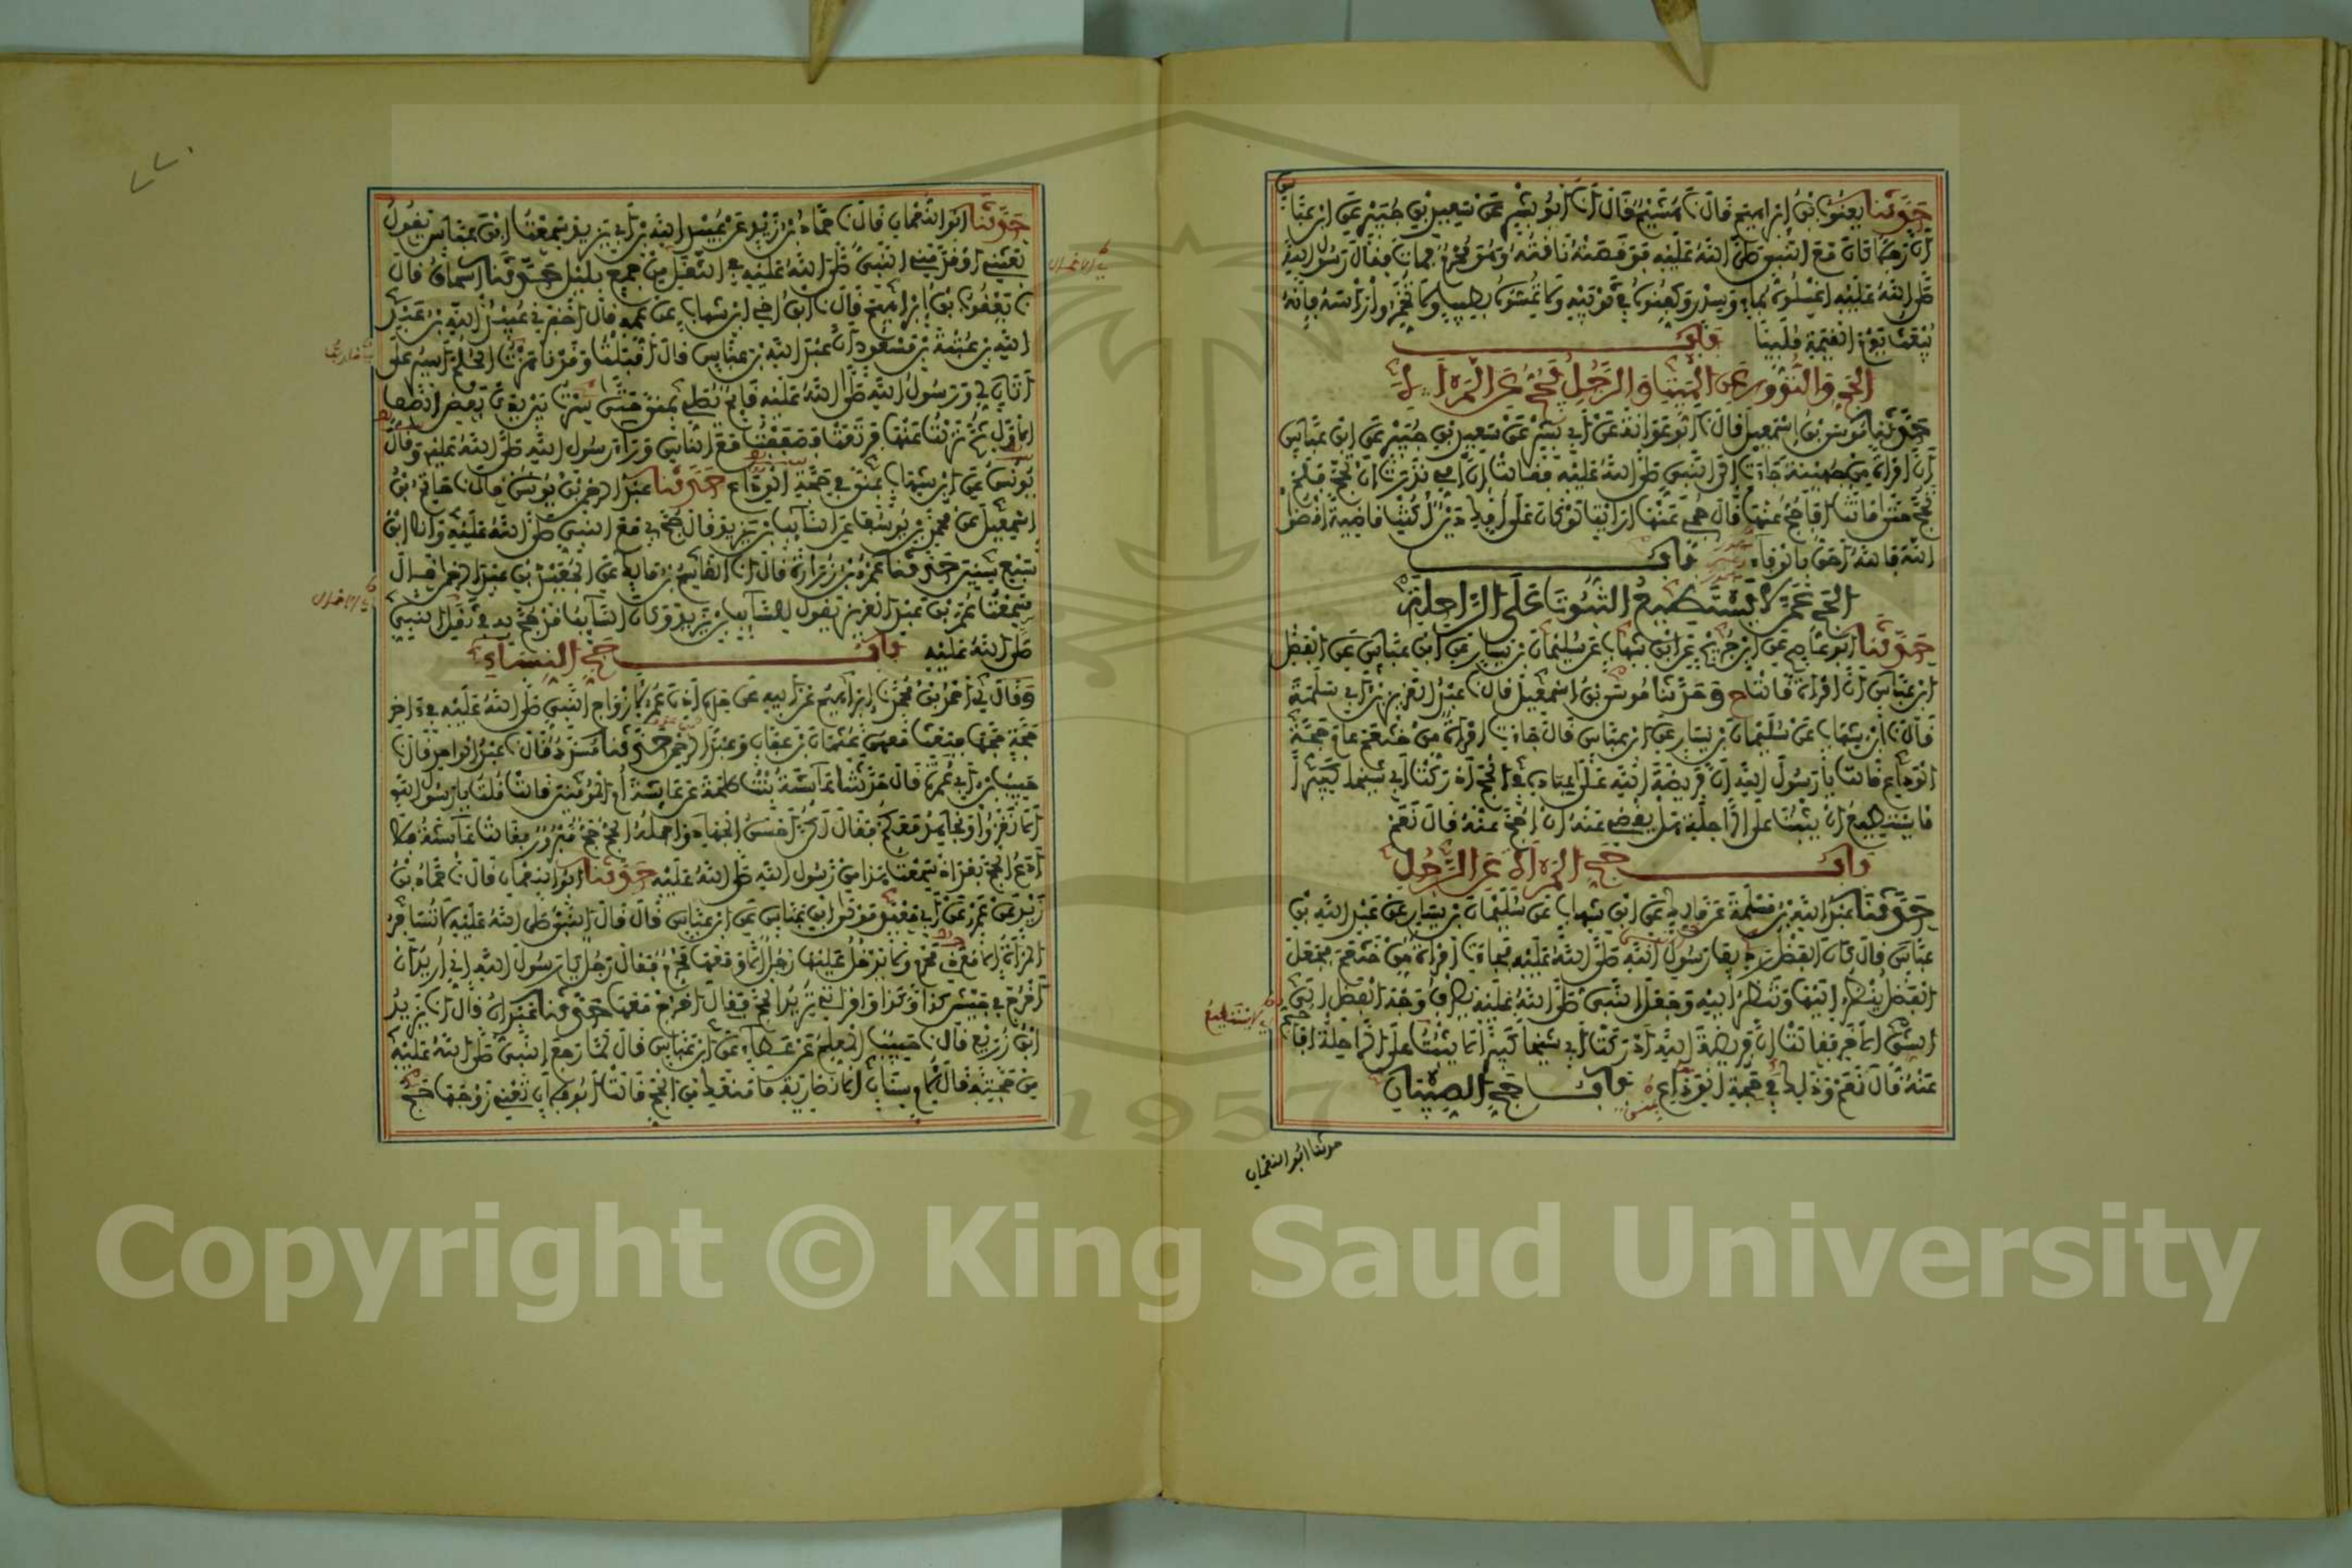 حدثنا يعقوب بن إبراهيم قال نا هشيم قال أنا أبو بشر عن سعيد بن جبير عن ابن عباس
أن رجلا كان مع النبي صلى الله عليه فوقصته ناقته وهو محرم فمات فقال رسول الله
صلى الله عليه اغسلوه بماء وسدر وكفنوه في ثوبيه ولا تمسوه بطيب ولا تخمروا رأسه فإنه
يبعث يوم القيمة ملبيا باب
الحج والنذور عن الميت والرجل يحج عن المرأة
حدثنا موسى بن إسمعيل قال نا أبو عوانة عن أبي بشر عن سعيد بن جبير عن ابن عباس
أن امرأة من جهينة جاءت إلى النبي صلى الله عليه فقالت إن أمي نذرت أن تحج فلم
تحج حتى ماتت أفأحج عنها قال حجي عنها أرأيت لو كان على أمك دين أكنت قاضية اقضوا
الله فالله أحق بالوفاء باب
الحج عمن لا يستطيع الثبوت على الراحلة
حدثنا أبو عاصم عن ابن جريج عن ابن شهاب عن سليمان بن يسار عن ابن عباس عن الفضل
ابن عباس أن امرأة قالت ح وحدثنا موسى بن إسمعيل قال نا عبد العزيز بن أبي سلمة
قال نا ابن شهاب عن سليمان بن يسار عن ابن عباس قال جاءت امرأة من خثعم عام حجة
الوداع قالت يا رسول الله إن فريضة الله على عباده في الحج أدركت أبي شيخا كبيرا
لا يستطيع أن يثبت على الراحلة هل يقضي عنه أن أحج عنه قال نعم
باب حج المرأة عن الرجل
حدثنا عبد الله بن مسلمة عن مالك عن ابن شهاب عن سليمان بن يسار عن عبد الله بن
عباس قال كان الفضل رديف رسول الله صلى الله عليه فجاءت امرأة من خثعم فجعل
الفضل ينظر إليها وتنظر إليه وجعل النبي صلى الله عليه يصرف وجه الفضل إلى
الشق الآخر فقالت إن فريضة الله أدركت أبي شيخا كبيرا لا يثبت على الراحلة أفأحج
عنه قال نعم وذلك في حجة الوداع باب حج الصبيان
حدثنا أبو النعمان
حدثنا أبو النعمان قال نا حماد بن زيد عن عبيد الله بن أبي يزيد سمعت ابن عباس يقول
بعثني أو قدمني النبي صلى الله عليه في الثقل من جمع بليل حدثنا إسحاق قال
نا يعقوب بن إبراهيم قال نا ابن أخي ابن شهاب عن عمه قال أخبرني عبيد الله بن عبد
الله بن عتبة بن مسعود أن عبد الله بن عباس قال أقبلت وقد ناهزت الحلم أسير على
أتان لي ورسول الله صلى الله عليه قائم يصلي بمنى حتى سرت بين يدي بعض الصف
الأول ثم نزلت عنها فرتعت فصففت مع الناس وراء رسول الله صلى الله عليه وقال
يونس عن ابن شهاب بمنى في حجة الوداع حدثنا عبد الرحمن بن يونس قال نا حاتم بن
إسمعيل عن محمد بن يوسف عن السائب بن يزيد قال حج بي مع النبي صلى الله عليه وأنا ابن
سبع سنين حدثنا عمرو بن زرارة قال أنا القاسم بن مالك عن الجعيد بن عبد الرحمن قال
سمعت عمر بن عبد العزيز يقول للسائب بن يزيد وكان السائب قد حج به في ثقل النبي
صلى الله عليه باب حج النساء
وقال لي أحمد بن محمد نا إبراهيم عن أبيه عن جده أذن عمر لأزواج النبي صلى الله عليه في آخر
حجة حجها فبعث معهن عثمان بن عفان وعبد الرحمن حدثنا مسدد قال نا عبد الواحد قال نا
حبيب بن أبي عمرة قال حدثتنا عائشة بنت طلحة عن عائشة أم المومنين قالت قلت يا رسول الله
ألا نغزوا ونجاهد معكم فقال لكن أحسن الجهاد وأجمله الحج حج مبرور فقالت عائشة فلا
أدع الحج بعد إذ سمعت هذا من رسول الله صلى الله عليه حدثنا أبو النعمان قال نا حماد بن
زيد عن عمرو عن أبي معبد مولى ابن عباس عن ابن عباس قال قال النبي صلى الله عليه لا تسافر
المرأة إلا مع ذي محرم ولا يدخل عليها رجل إلا ومعها محرم فقال رجل يا رسول الله إني أريد أن
أخرج في جيش كذا وكذا وامرأتي تريد الحج فقال اخرج معها حدثنا عبدان قال أنا يزيد
ابن زريع قال نا حبيب المعلم عن عطاء عن ابن عباس قال لما رجع النبي صلى الله عليه
من حجته قال لأم سنان الأنصارية ما منعك من الحج قالت أبو فلان تعني زوجها حج
Copyright © King Saud University
1957